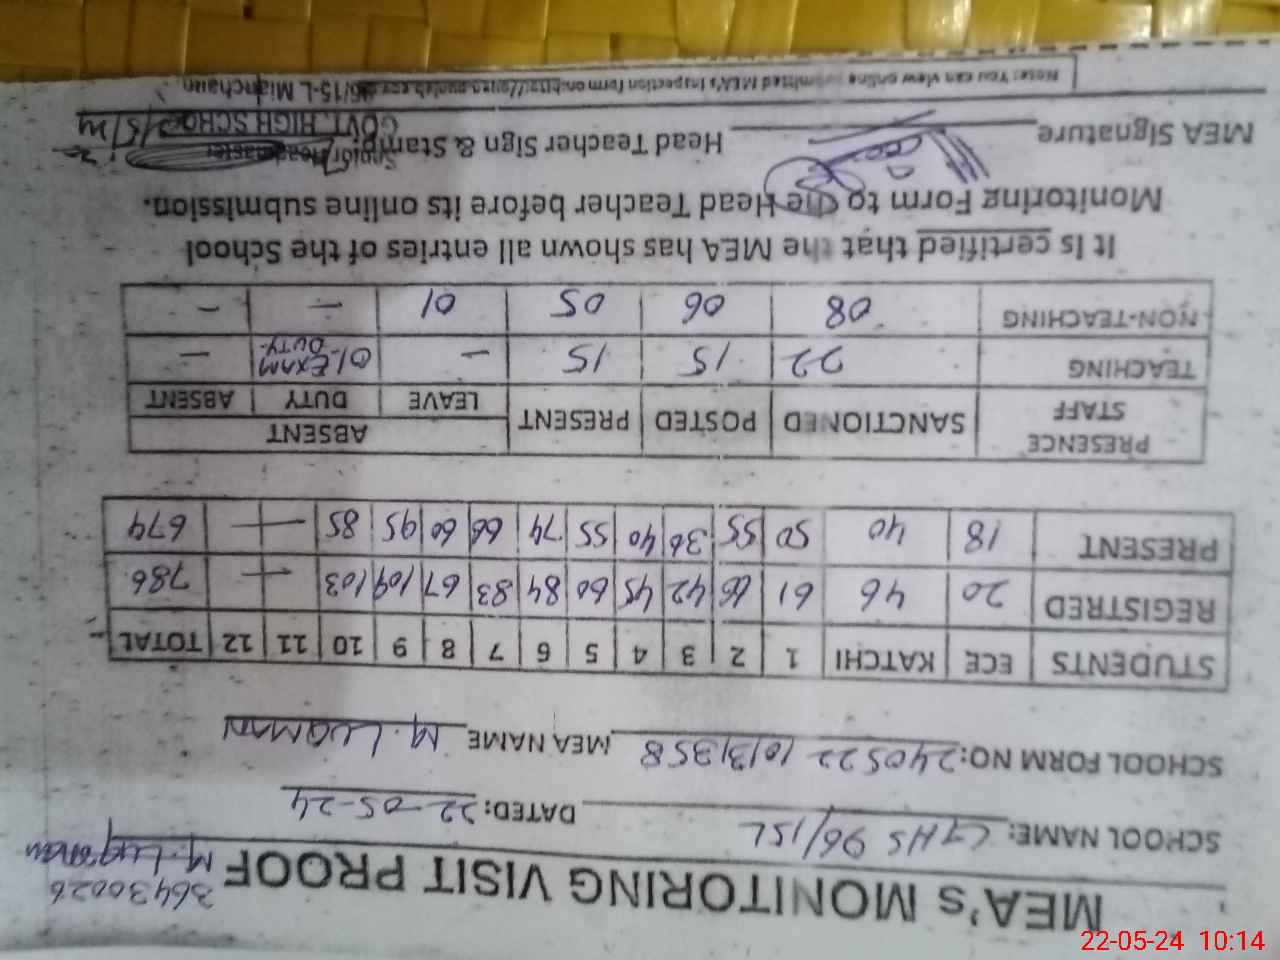 MEA's MONITORING VISIT PROOF
36430026
M. Luqman
SCHOOL NAME: GHS 96/15L DATED: 22-05-24
SCHOOL FORM NO: 240522 10131358 MEA NAME M. LUQMAN
STUDENTS ECE KATCHI 1 2 3 4 5 6 7 8 9 10 11 12 TOTAL
REGISTRED 20 46 61 66 42 45 60 84 83 67 109 103 — 786
PRESENT 18 40 50 55 36 40 55 74 66 60 95 85 — 674
PRESENCE STAFF SANCTIONED POSTED PRESENT ABSENT
LEAVE DUTY ABSENT
TEACHING 22 15 15 — 01-EXAM DUTY —
NON-TEACHING 08 06 05 01 — —
It Is certified that the MEA has shown all entries of the School
Monitoring Form to the Head Teacher before its online submission.
MEA Signature Head Teacher Sign & Stamp
Senior Headmaster
GOVT. HIGH SCHOOL
96/15-L Mianchannu
Note: You can view online submitted MEA's inspection form on: http://
22-05-24 10:14